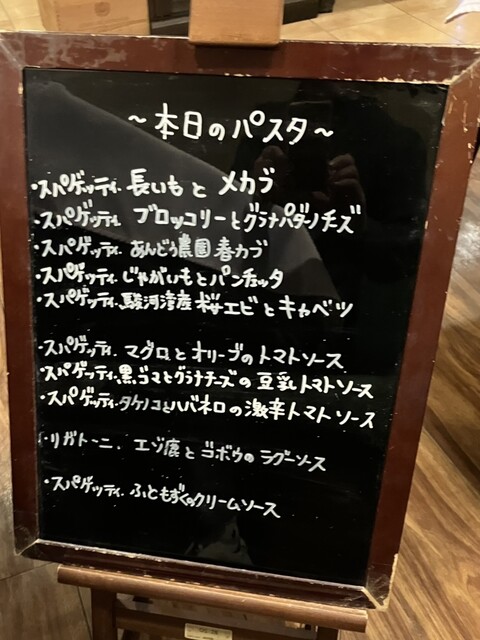 ～本日のパスタ～
・スパゲッティ. 長いもと メカブ
・スパゲッティ. ブロッコリーとグラナパダーノチーズ
・スパゲッティ. あんどう農園 春カブ
・スパゲッティ. じゃがいもとパンチェッタ
・スパゲッティ. 駿河湾産 桜エビとキャベツ
・スパゲッティ. マグロとオリーブのトマトソース
・スパゲッティ. 黒ゴマとグラナチーズの豆乳トマトソース
・スパゲッティ. タケノコとハバネロの激辛トマトソース
・リガトーニ. エゾ鹿とゴボウのラグーソース
・スパゲッティ. ふともずくのクリームソース